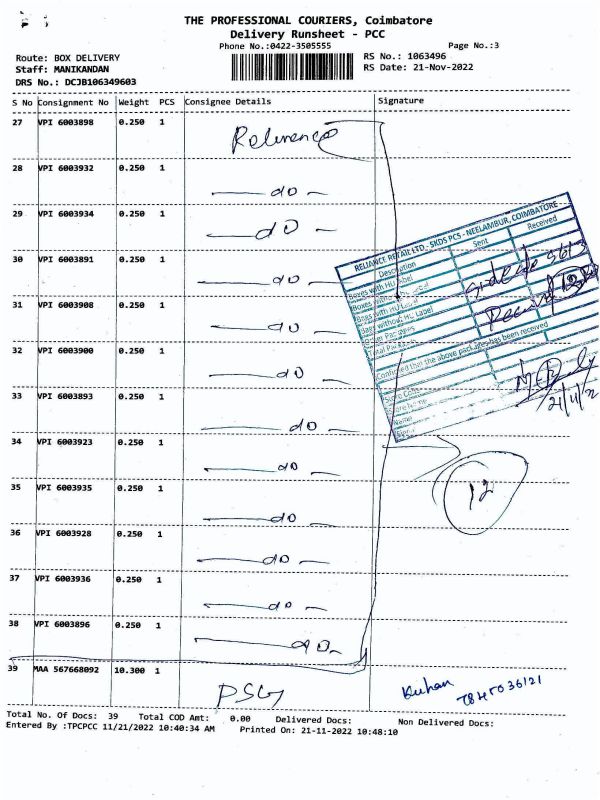 THE PROFESSIONAL COURIERS, Coimbatore
Delivery Runsheet - PCC
Phone No.:0422-3505555
Page No.:3
Route: BOX DELIVERY
RS No.: 1063496
Staff: MANIKANDAN
RS Date: 21-Nov-2022
DRS No.: DCJB106349603
S No Consignment No Weight PCS Consignee Details Signature
27 VPI 6003898 0.250 1
28 VPI 6003932 0.250 1 do
29 VPI 6003934 0.250 1 do
30 VPI 6003891 0.250 1 do
31 VPI 6003908 0.250 1 do
32 VPI 6003900 0.250 1 do
33 VPI 6003893 0.250 1 do
34 VPI 6003923 0.250 1 do
35 VPI 6003935 0.250 1 do
36 VPI 6003928 0.250 1 do
37 VPI 6003936 0.250 1 do
38 VPI 6003896 0.250 1 do
39 MAA 567668092 10.300 1 PSG
RELIANCE RETAIL LTD - SKDS PCS - NEELAMBUR, COIMBATORE
Description Sent Received
Boxes with HU Label
Bags without HU Label
Confirmed that the above packages has been received
Name
12
Kuhan
Total No. Of Docs: 39 Total COD Amt: 0.00 Delivered Docs: Non Delivered Docs:
Entered By :TPCPCC 11/21/2022 10:40:34 AM Printed On: 21-11-2022 10:48:10